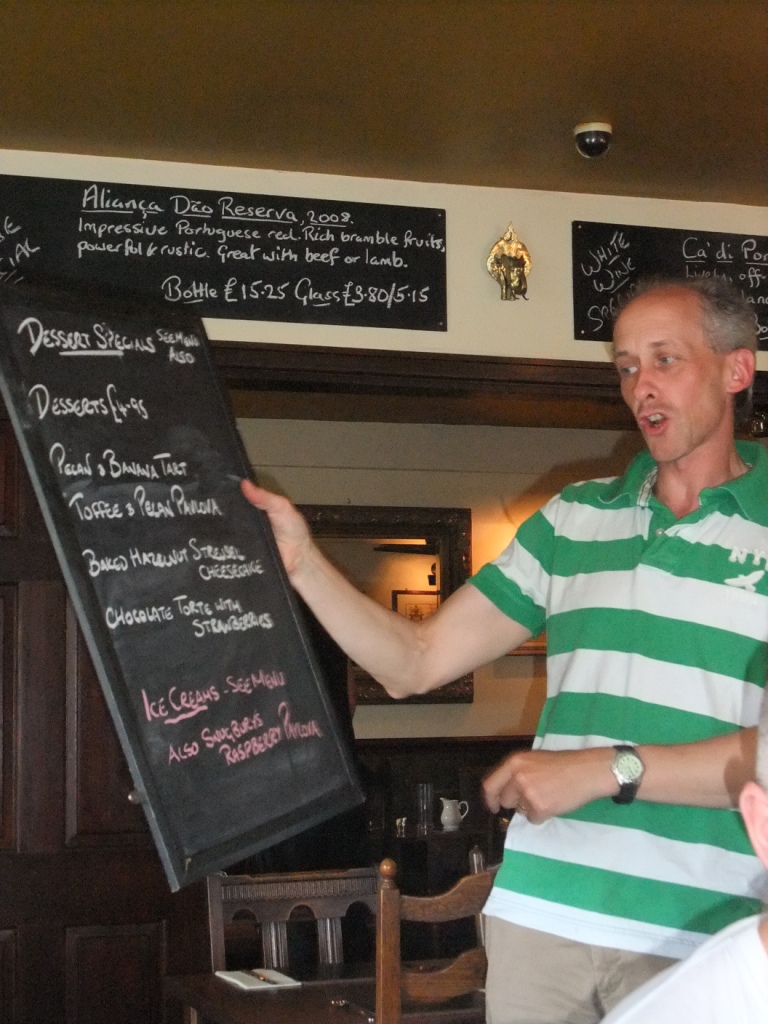 Aliança Dão Reserva, 2008.
Impressive Portuguese red. Rich bramble fruits,
powerful & rustic. Great with beef or lamb.
Bottle £15.25 Glass £3.80/5.15
WHITE
WINE
Ca' di Pon
DESSERT SPECIALS SEE MENU
ALSO
DESSERTS £4.95
PECAN & BANANA TART
TOFFEE & PECAN PAVLOVA
BAKED HAZELNUT STREUSEL
CHEESECAKE
CHOCOLATE TORTE WITH
STRAWBERRIES
ICE CREAMS - SEE MENU
ALSO
RASPBERRY PAVLOVA